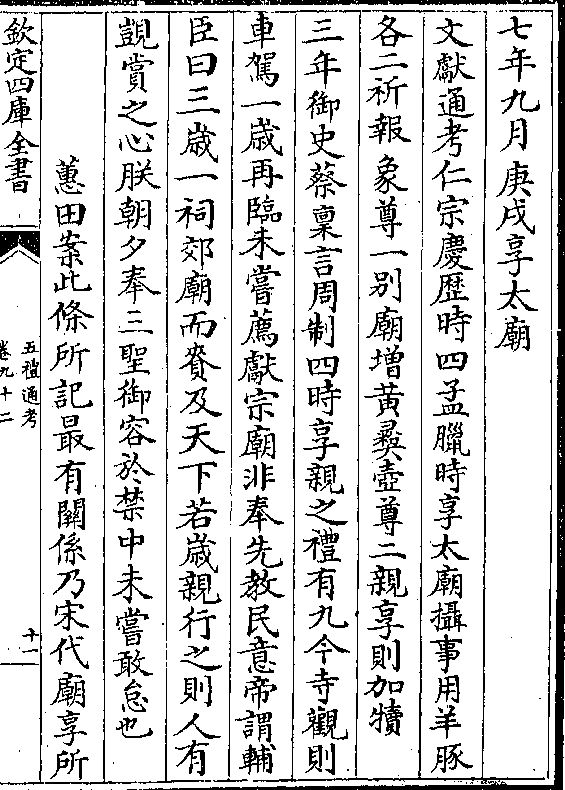 七年九月庚戌享太廟
文獻通考仁宗慶歴時四孟臘時享太廟攝事用羊豚
各二祈報象尊一别廟增黄彞壺尊二親享則加犢
三年御史蔡禀言周制四時享親之禮有九今寺觀則
車駕一歳再臨未嘗薦獻宗廟非奉先教民意帝謂輔
臣曰三歳一祠郊廟而賚及天下若歳親行之則人有
覬賞之心朕朝夕奉三聖御容於禁中未嘗敢怠也
蕙田案此條所記最有關係乃宋代廟享所
欽定四庫全書
五禮通考
卷九十二
十一